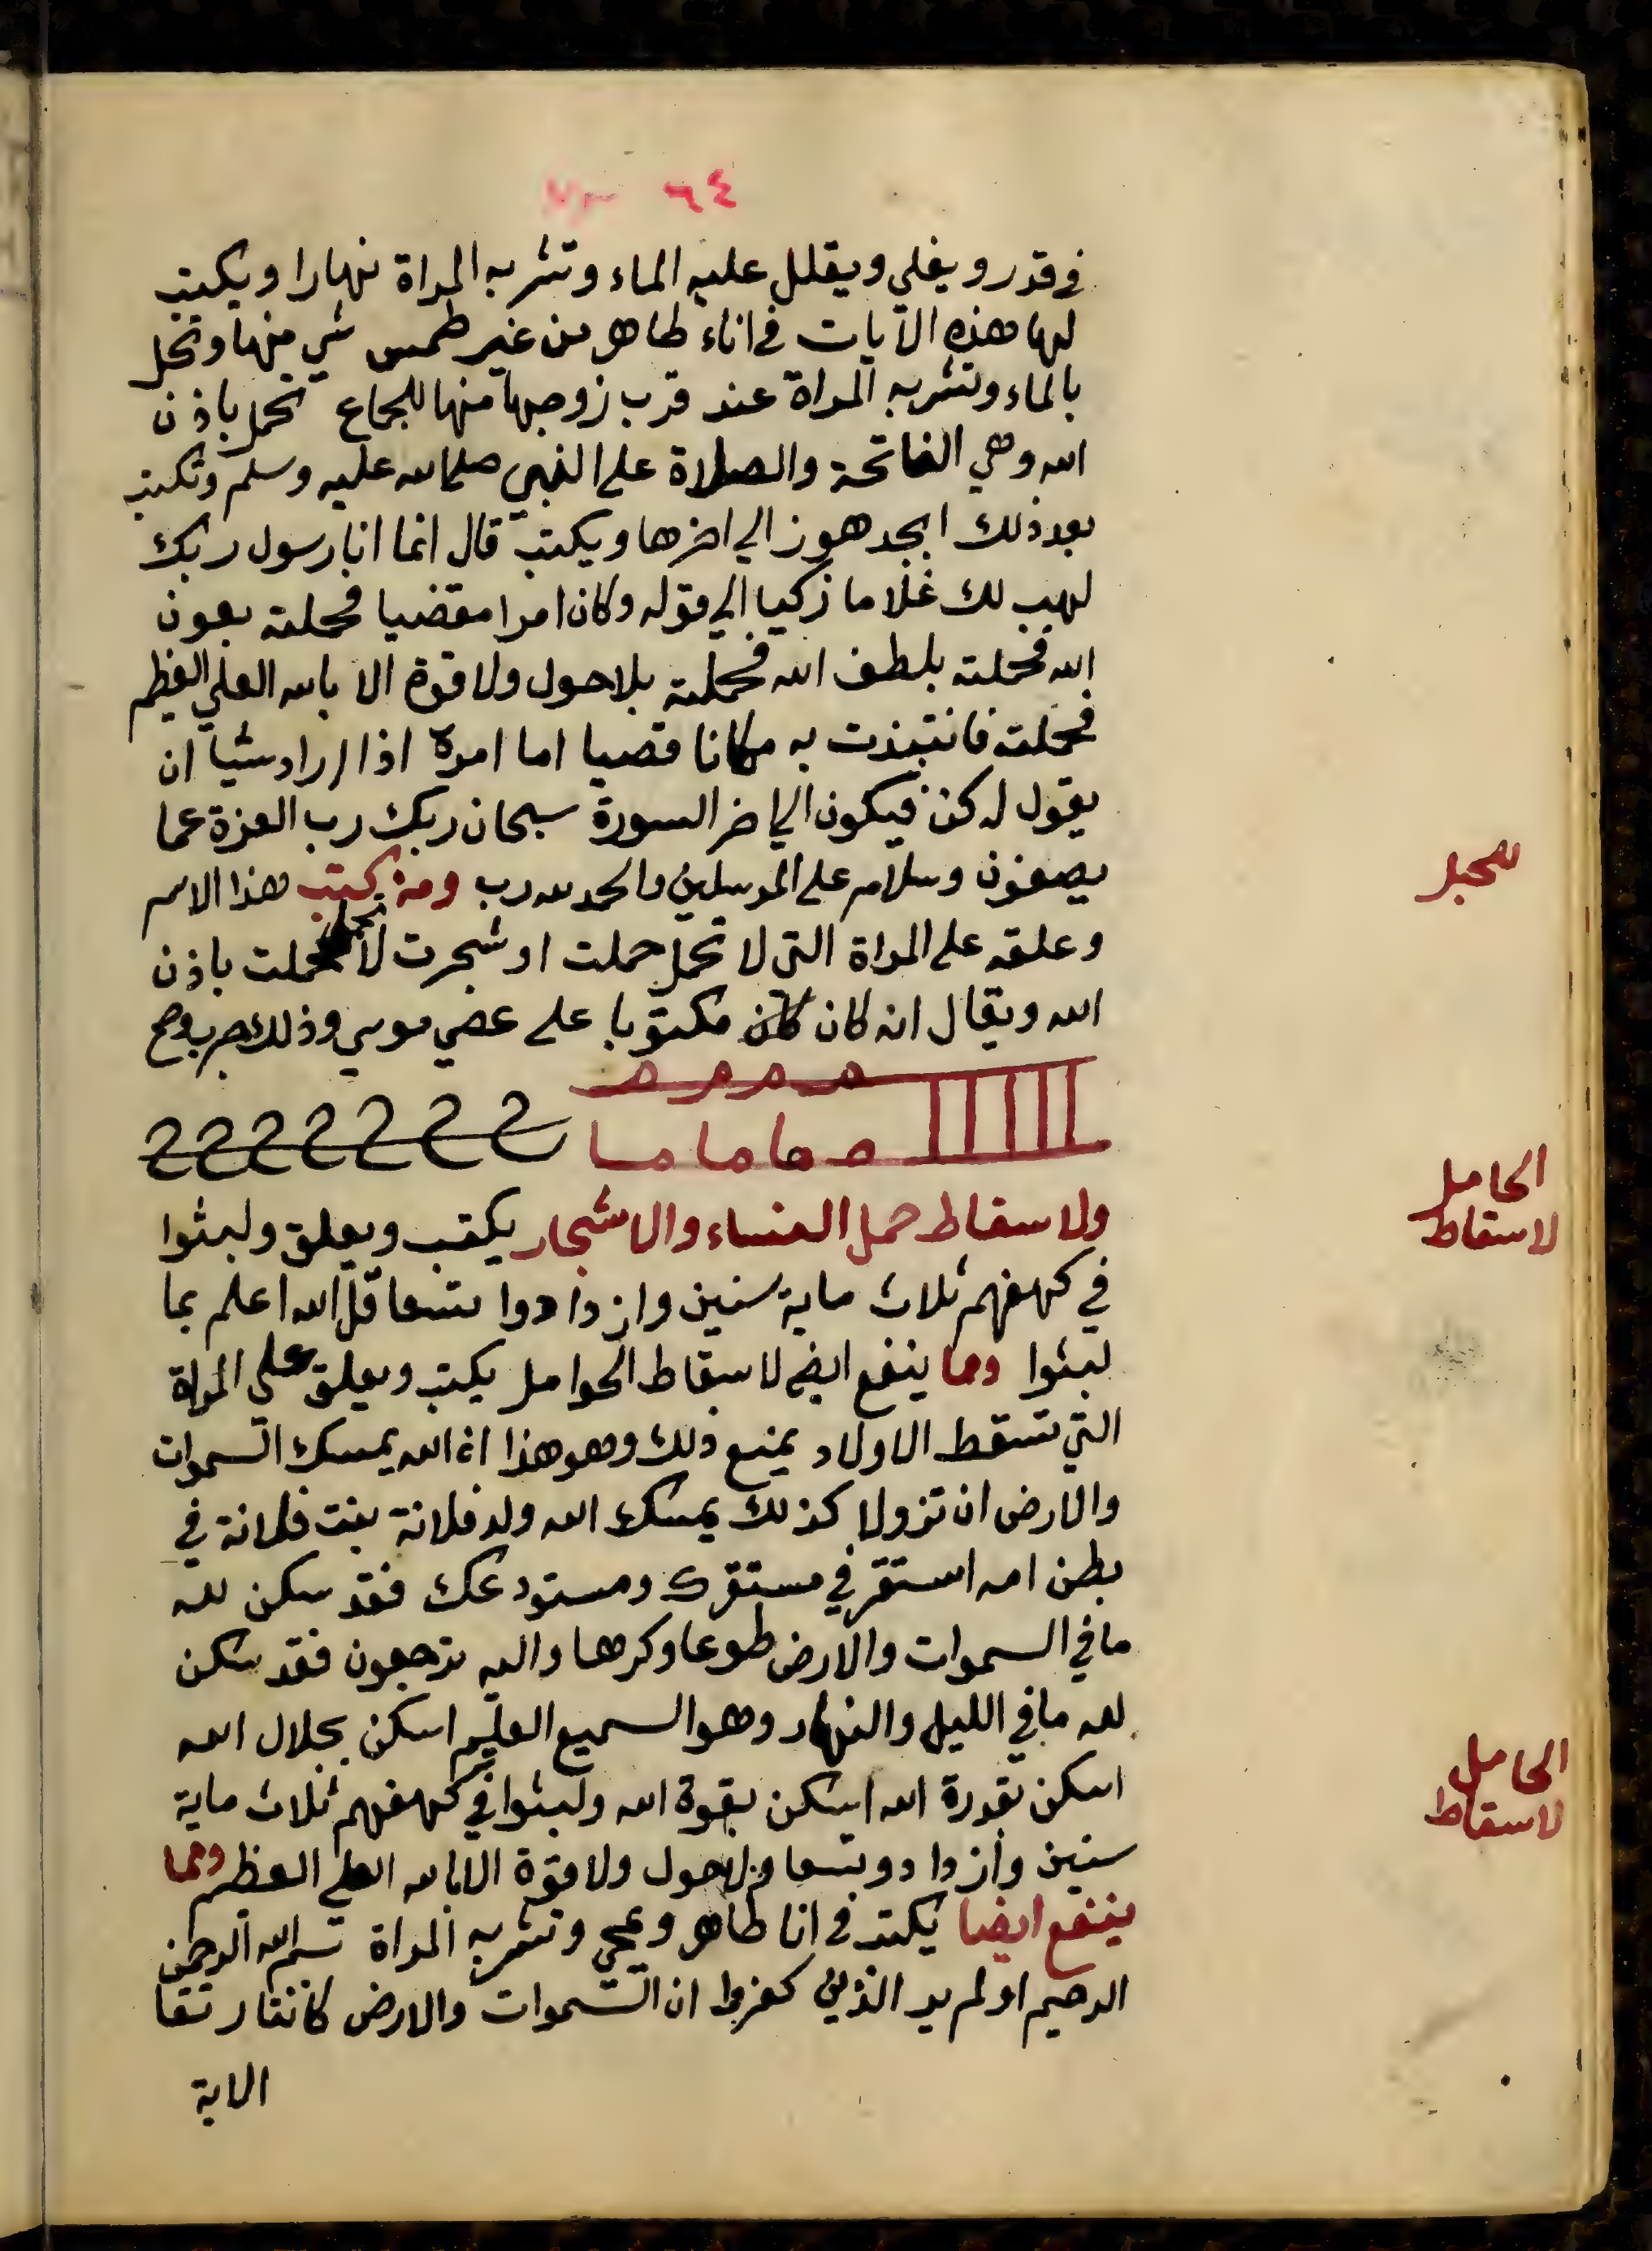 ٦٤
في قدر ويغلي ويقلل عليه الماء وتشربه المراة نهارا ويكتب
لها هذه الآيات في اناء طاهر من غير طمس شي منها وتحل
بالماء وتشربه المراة عند قرب زوجها منها للجماع تحمل باذن
الله وهي الفاتحة والصلاة على النبي صلى الله عليه وسلم وتكتب
بعد ذلك ابجد هوز الي اخرها ويكتب قال انما انا رسول ربك
لهب لك غلاما زكيا الي قوله وكان امرا مقضيا فحملته بعون
الله فحملته بلطف الله فحملته بلا حول ولا قوة الا بالله العلي العظيم
فحملته فانتبذت به مكانا قصيا اما امره اذا اراد شيا ان
يقول له كن فيكون الي اخر السورة سبحان ربك رب العزة عما
يصفون وسلام على المرسلين والحمد لله رب ومن كتب هذا الاسم
وعلقه على المراة التي لا تحمل حملت او شجرت لا تحمل حملت باذن
الله ويقال انه كان مكتوبا على عصي موسي وذلك مجرب وصح
ولاسقاط حمل النساء والاشجار يكتب ويعلق ولبثوا
في كهفهم ثلاث ماية سنين وازدادوا تسعا قل الله اعلم بما
لبثوا ومما ينفع ايضا لاسقاط الحوامل يكتب ويعلق على المراة
التي تسقط الاولاد يمنع ذلك وهو هذا ان الله يمسك السموات
والارض ان تزولا كذلك يمسك الله ولد فلانة بنت فلانة في
بطن امه استقر في مستقرك ومستودعك فقد سكن لله
ما في السموات والارض طوعا وكرها واليه ترجعون فقد سكن
لله ما في الليل والنهار وهو السميع العليم اسكن بجلال الله
اسكن بقدرة الله اسكن بقوة الله ولبثوا في كهفهم ثلاث ماية
سنين وازدادو تسعا ولا حول ولا قوة الا بالله العلي العظيم ومما
ينفع ايضا يكتب في انا طاهر ويمحي وتشربه المراة بسم الله الرحمن
الرحيم اولم ير الذين كفروا ان السموات والارض كانتا رتقا
الاية
للحبل
الحامل
لاسقاط
الحامل
لاسقاط